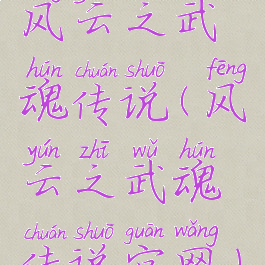 风云之武
hún chuán shuō fēng
魂传说(风
yún zhī wǔ hún
云之武魂
chuán shuō guān wǎng
传说官网)